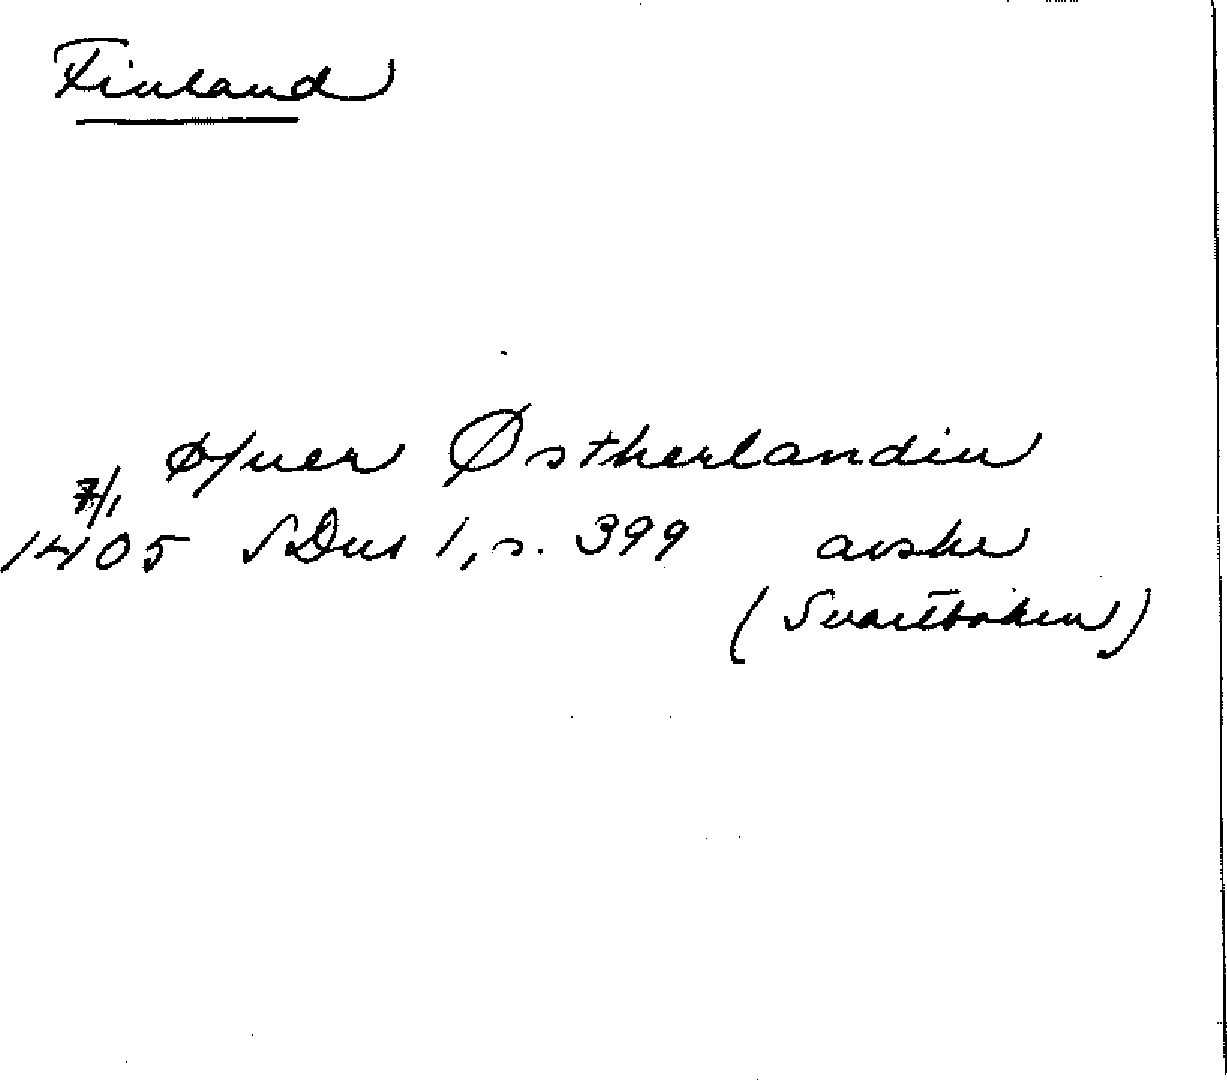 Finland
øfuer Østherlandin
7/1
1405 SDns 1, s. 399 avskr
(Svartboken)